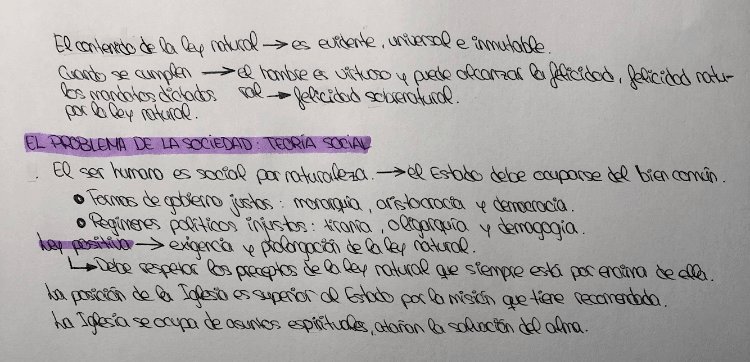 El contenido de la ley natural → es evidente, universal e inmutable.
Cuando se cumplen → el hombre es virtuoso y puede alcanzar la felicidad, felicidad natu-
los mandatos dictados ral → felicidad sobrenatural.
por la ley natural.
EL PROBLEMA DE LA SOCIEDAD: TEORÍA SOCIAL
. El ser humano es social por naturaleza. → el Estado debe ocuparse del bien común.
• Formas de gobierno justas: monarquía, aristocracia y democracia.
• Regímenes políticos injustos: tiranía, oligarquía y demagogia.
Ley positiva → exigencia y prolongación de la ley natural.
↳ Debe respetar los preceptos de la ley natural que siempre está por encima de ella.
La posición de la Iglesia es superior al Estado por la misión que tiene recomendada.
La Iglesia se ocupa de asuntos espirituales, atañan la salvación del alma.